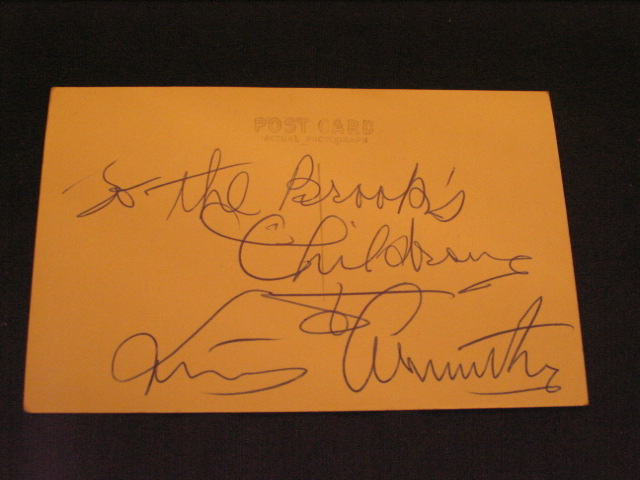 POST CARD
ACTUAL PHOTOGRAPH
To the Brook's
Children